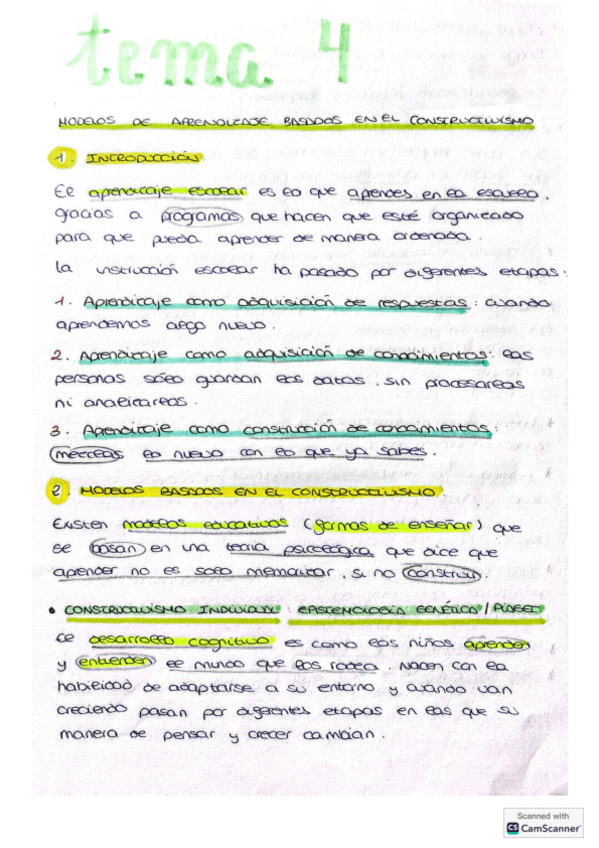 tema 4
MODELOS DE APRENDIZAJE BASADOS EN EL CONSTRUCTIVISMO
1. INTRODUCCIÓN
El aprendizaje escolar es lo que aprendes en la escuela,
gracias a progamas que hacen que esté organizado
para que pueda aprender de manera ordenada.
La instrucción escolar ha pasado por diferentes etapas:
1. Aprendizaje como adquisición de respuestas: cuando
aprendemos algo nuevo.
2. Aprendizaje como adquisición de conocimientos: las
personas sólo guardan los datos, sin procesarlas
ni analizarlas.
3. Aprendizaje como construcción de conocimientos:
mezclas lo nuevo con lo que ya sabes.
2. MODELOS BASADOS EN EL CONSTRUCTIVISMO
Existen modelos educativos (formas de enseñar) que
se basan en una teoría psicológica que dice que
aprender no es solo memorizar, si no construir.
• CONSTRUCTIVISMO INDIVIDUAL: EPISTEMOLOGÍA GENÉTICA / PIAGET
El desarrollo cognitivo es como los niños aprenden
y entienden el mundo que los rodea. Nacen con la
habilidad de adaptarse a su entorno y cuando van
creciendo pasan por diferentes etapas en las que su
manera de pensar y crecer cambian.
Scanned with
CS CamScanner